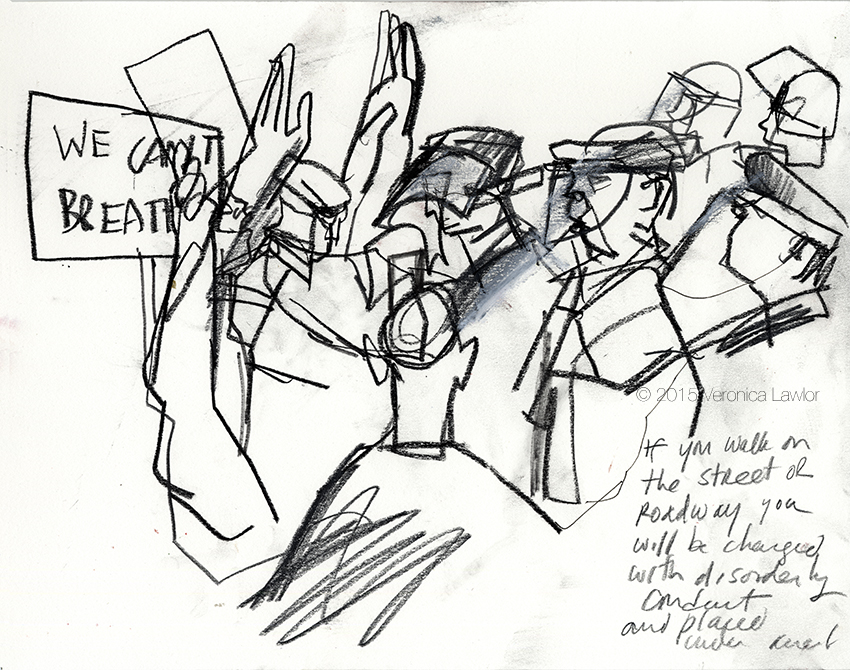 WE CAN'T
BREATHE
© 2015 Veronica Lawlor
If you walk on
the street or
roadway you
will be charged
with disorderly
conduct
and placed
under arrest